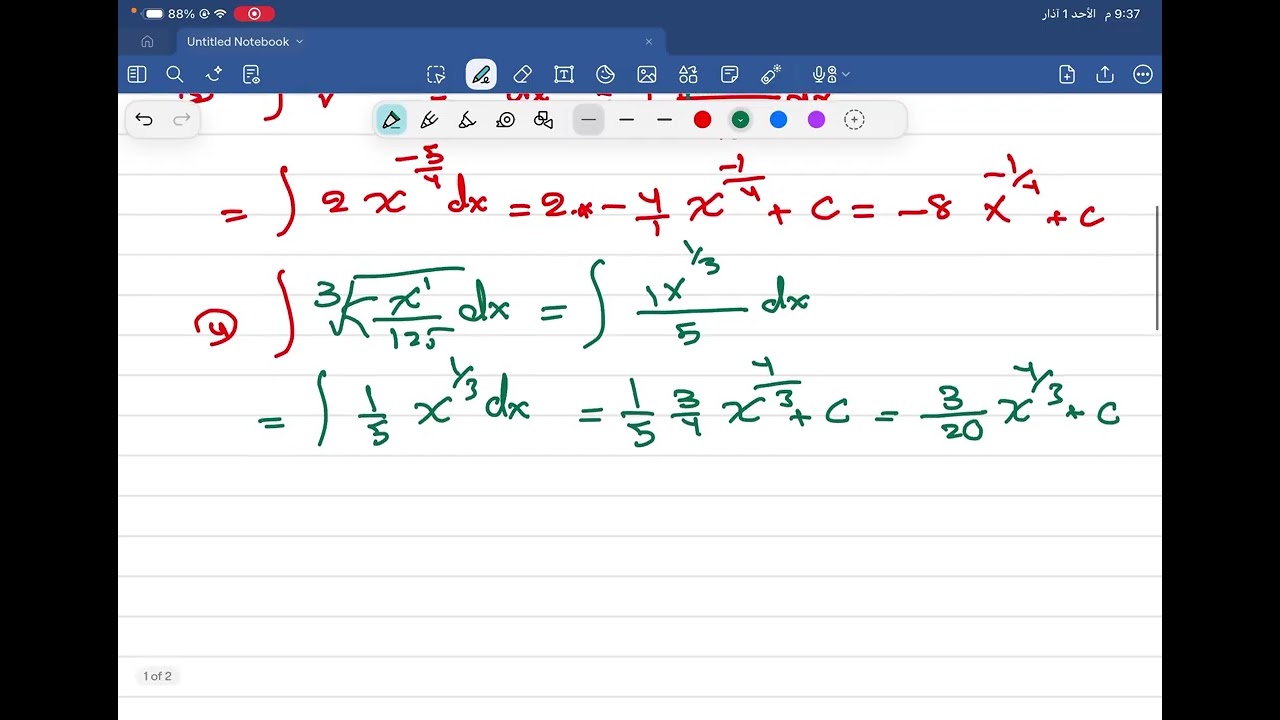 88%
9:37 م الأحد 1 آذار
Untitled Notebook
= ∫ 2 x^(-5/4) dx = 2 · * - 4/1 x^(-1/4) + c = -8 x^(-1/4) + c
④ ∫ ∛(x^1/125) dx = ∫ 1x^(1/3)/5 dx
= ∫ 1/5 x^(1/3) dx = 1/5 3/4 x^(4/3) + c = 3/20 x^(4/3) + c
1 of 2